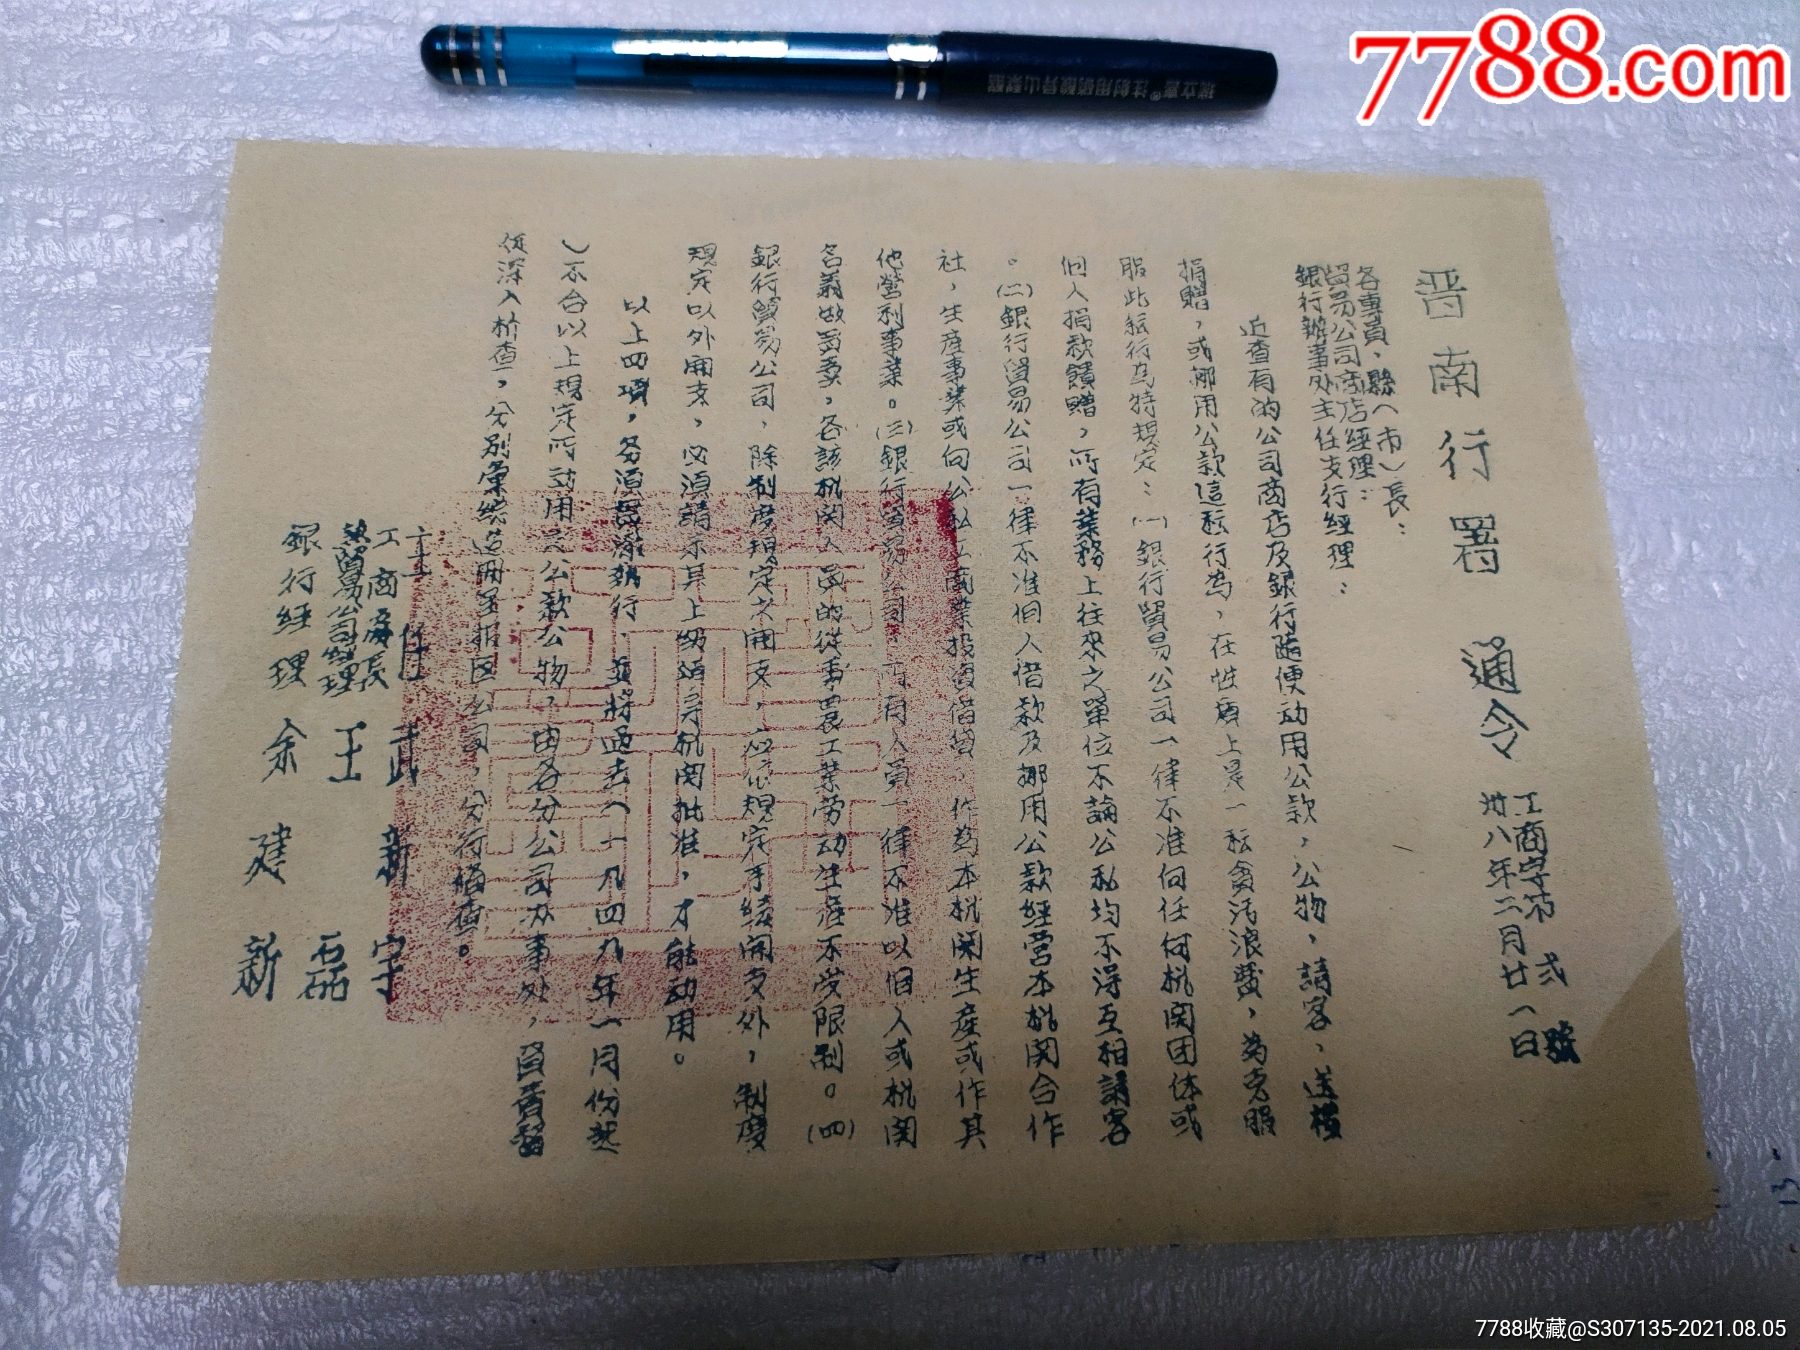 7788.com
瑞立喜®注射用硝酸异山梨酯
晋南行署 通令 工商字第 弍 號
卅八年二月廿一日
各專員、縣(市)長：
貿易公司商店經理：
銀行辦事处主任支行經理：
近查有的公司商店及銀行隨便动用公款，公物，請客，送禮
捐贈，或挪用公款這种行為，在性質上是一种貪汚浪費，為克服
服此种行為特規定：(一)銀行貿易公司一律不准向任何机関团体或
個人捐款饋贈，所有業務上往來之單位不論公私均不得互相請客
。(二)銀行貿易公司一律不准個人借款及挪用公款經营本机関合作
社，生產事業或向公私工商業投資借貸，作為本机関生產或作其
他營利事業。(三)銀行貿易公司，所有人員一律不准以個人或机関
名義做買賣，各該机関人員的從事農工業劳动生產不受限制。(四)
銀行貿易公司，除制度規定之開支，應依規定手續開支外，制度
規定以外開支，必須請示其上級 机関批准，才能动用。
以上四項，各須 行，並將過去(一九四九年一月份起
)不合以上規定所动用之公款公物，由各分公司办事处，
從深入檢查，分别彙總 呈报区公司，分行 查。
主任 武新宇
工商 長 王磊
貿易公司經理
銀行經理 余建新
13
7788收藏@S307135-2021.08.05